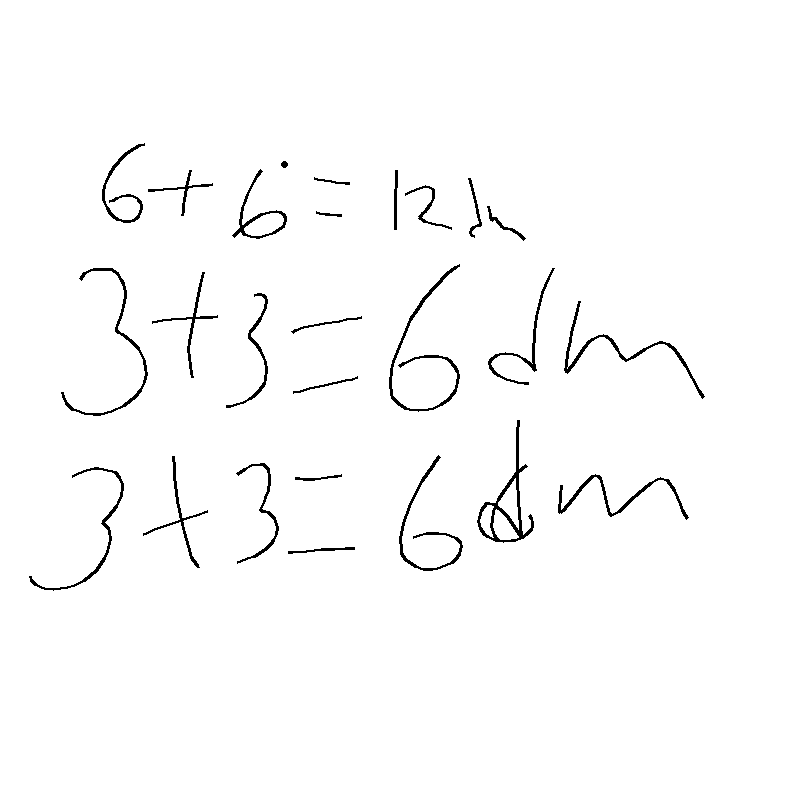 6+6=12dm
3+3=6dm
3+3=6dm